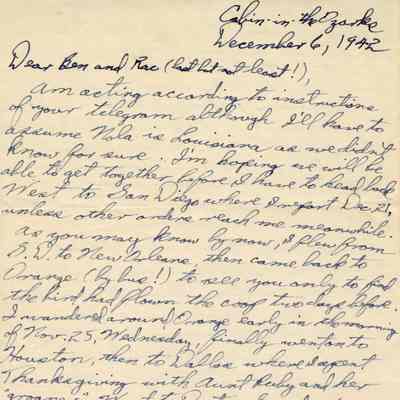 Cabin-in-the-Ozarks
December 6, 1942
Dear Ben and Rae (last but not least!),
Am acting according to instructions
of your telegram although I'll have to
assume Nola is Louisiana as we didn't
know for sure. I'm hoping we will be
able to get together before I have to head back
West to San Diego where I report Dec. 21,
unless other orders reach me meanwhile.
As you may know by now, I flew from
S.D. to New Orleans, then came back to
Orange (by bus!) to see you only to find
the bird had flown the coop two days before.
I wandered around Orange early in the morning
of Nov. 25, Wednesday, finally went on to
Houston, then to Dallas where I spent
Thanksgiving with Aunt Ruby and her